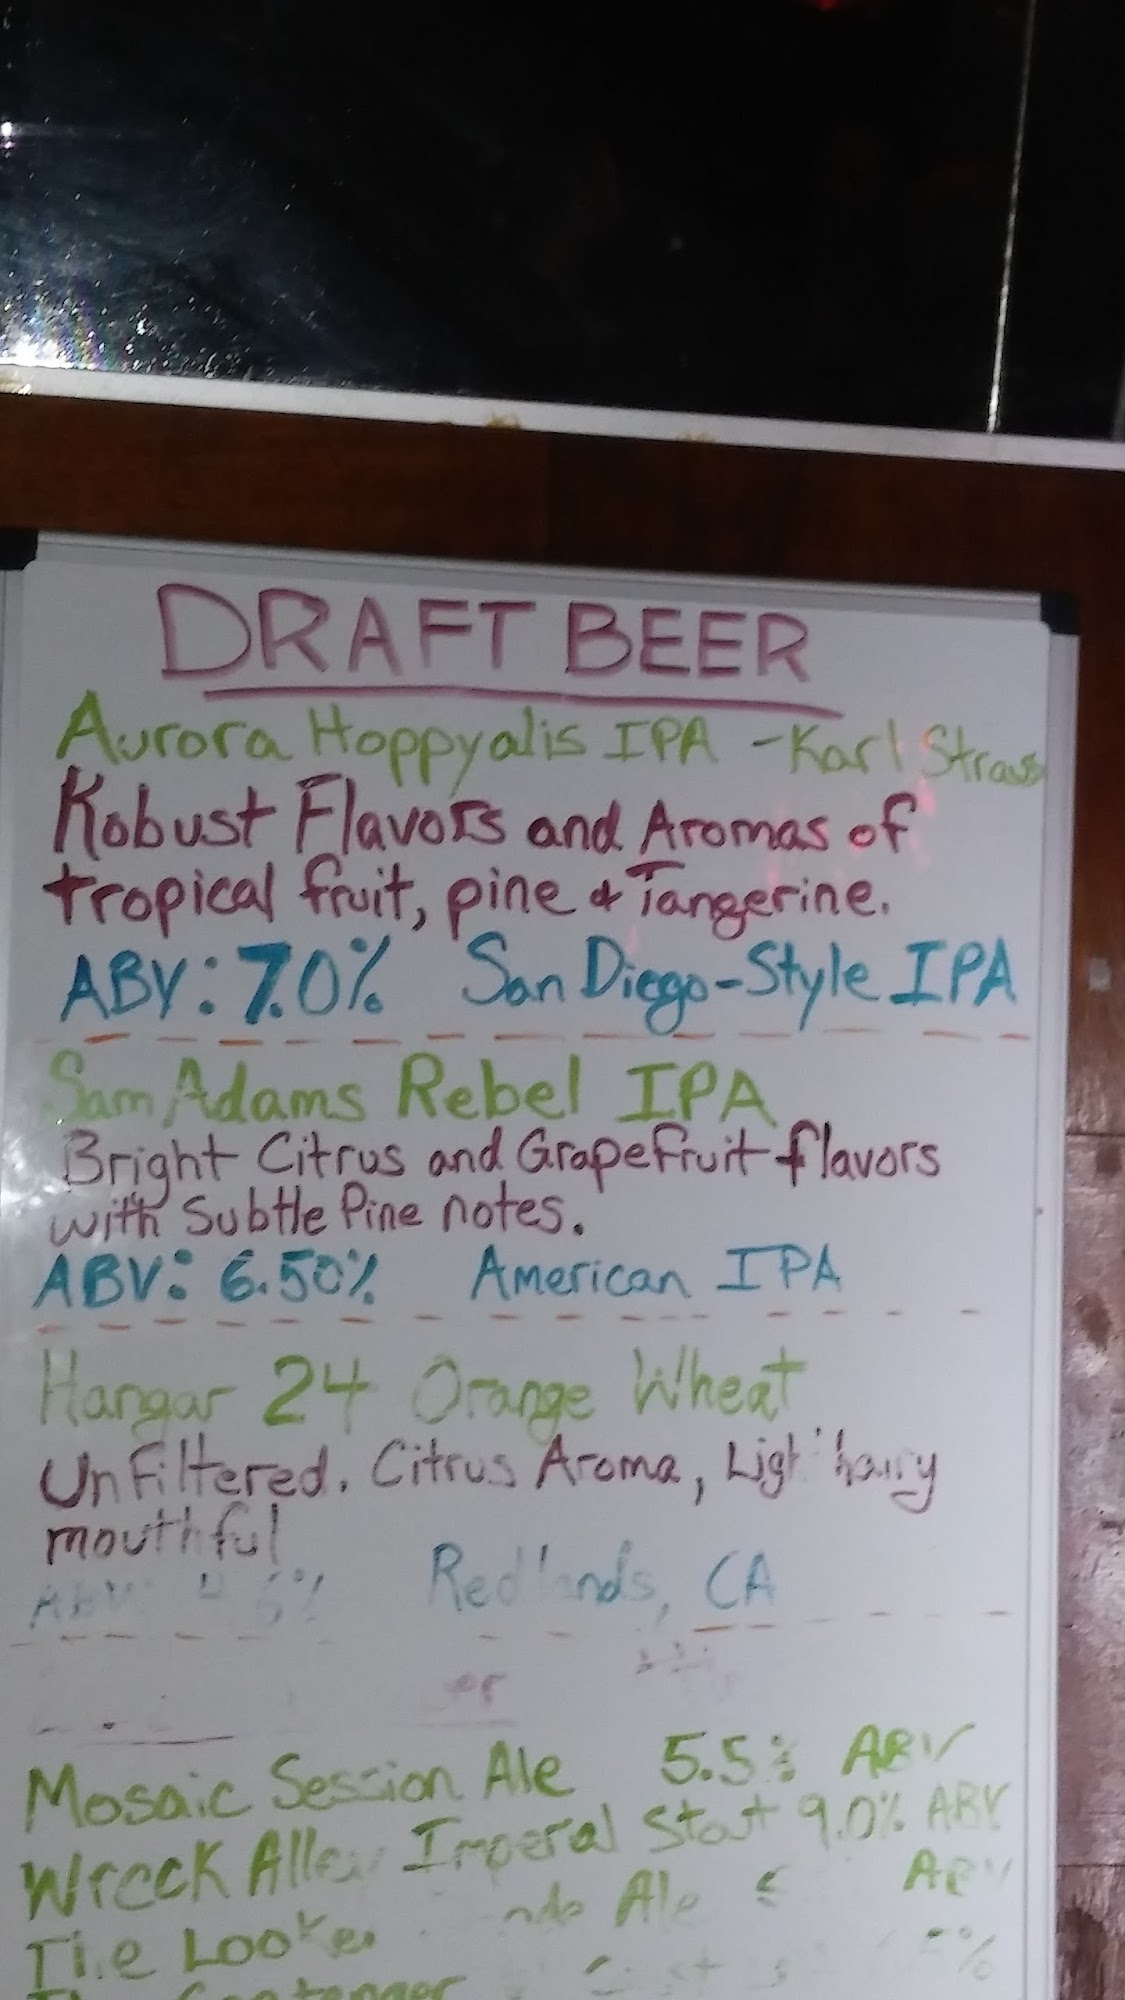 DRAFT BEER
Aurora Hoppyalis IPA - Karl Strauss
Robust Flavors and Aromas of
tropical fruit, pine & Tangerine.
ABV: 7.0% San Diego-Style IPA
Sam Adams Rebel IPA
Bright Citrus and Grapefruit flavors
with Subtle Pine notes.
ABV: 6.50% American IPA
Hangar 24 Orange Wheat
Unfiltered. Citrus Aroma,
mouthful
ABV: Redlands, CA
Mosaic Session Ale 5.5% ABV
Wreck Alley Imperal Stout 9.0% ABV
Ale ABV